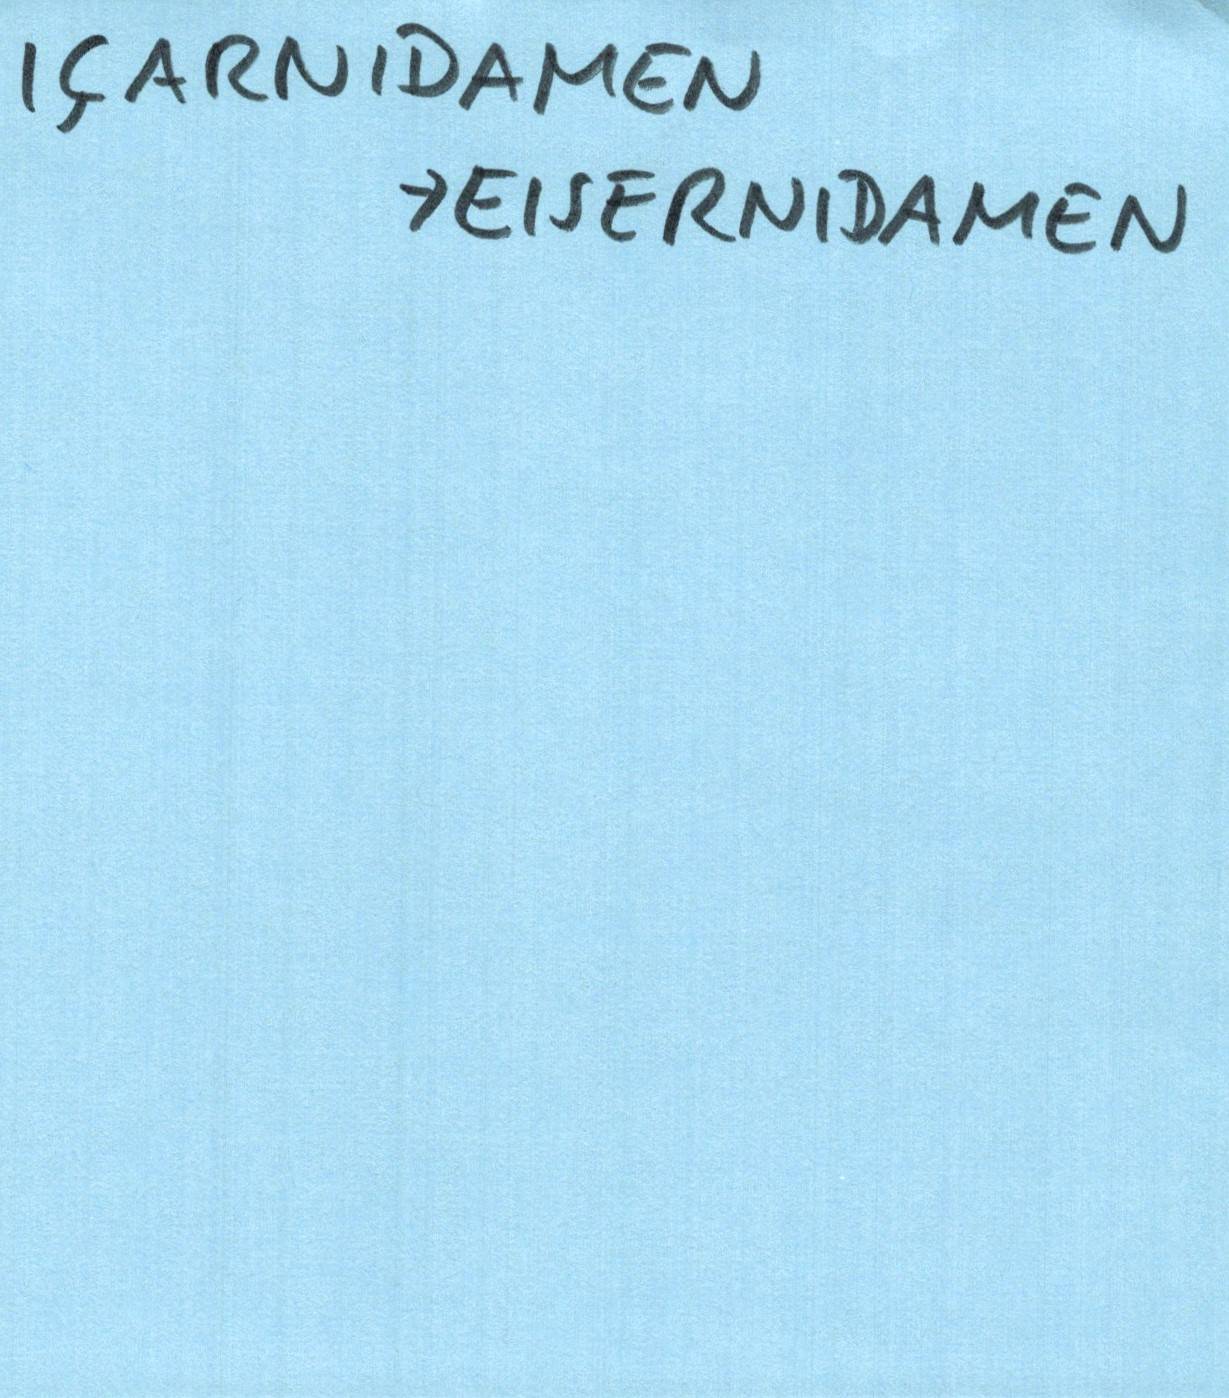 IÇARNIDAMEN
→EISERNIDAMEN